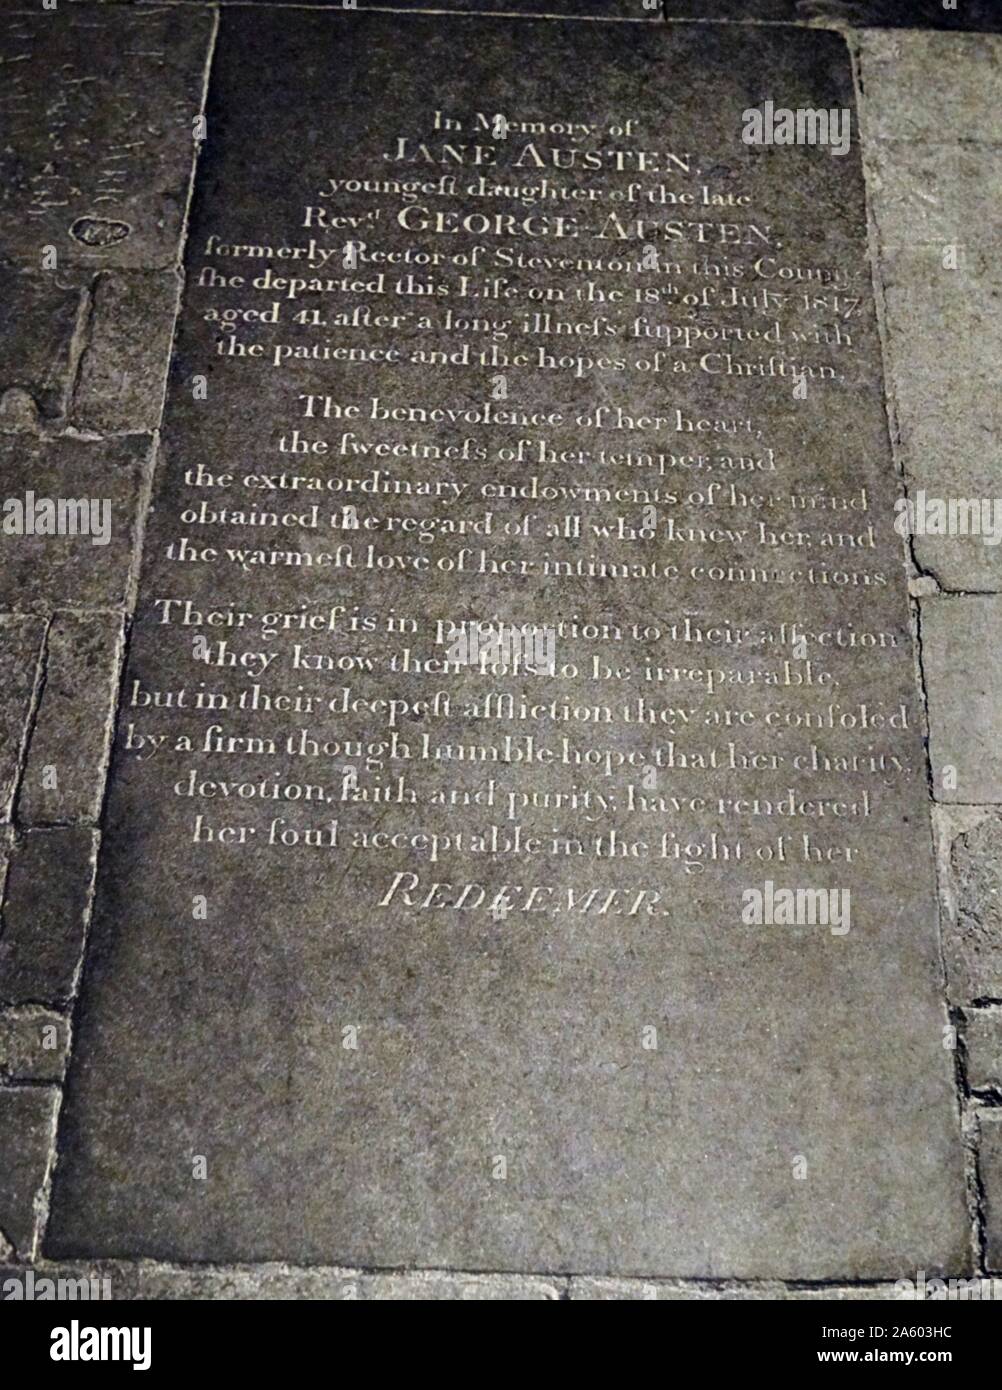 In Memory of
JANE AUSTEN,
youngeſt daughter of the late
Revd GEORGE AUSTEN,
formerly Rector of Steventon in this County
ſhe departed this Life on the 18th of July 1817,
aged 41, after a long illneſs ſupported with
the patience and the hopes of a Chriſtian.
The benevolence of her heart,
the ſweetneſs of her temper, and
the extraordinary endowments of her mind
obtained the regard of all who knew her, and
the warmeſt love of her intimate connections
Their grief is in proportion to their affection
they know their loſs to be irreparable,
but in their deepeſt affliction they are conſoled
by a firm though humble hope that her charity,
devotion, faith and purity, have rendered
her ſoul acceptable in the ſight of her
REDEEMER.
alamy
alamy
alamy
alamy
alamy
a
a
a
a
a
a
a
a
a
alamy
Image ID: 2A603HC
www.alamy.com